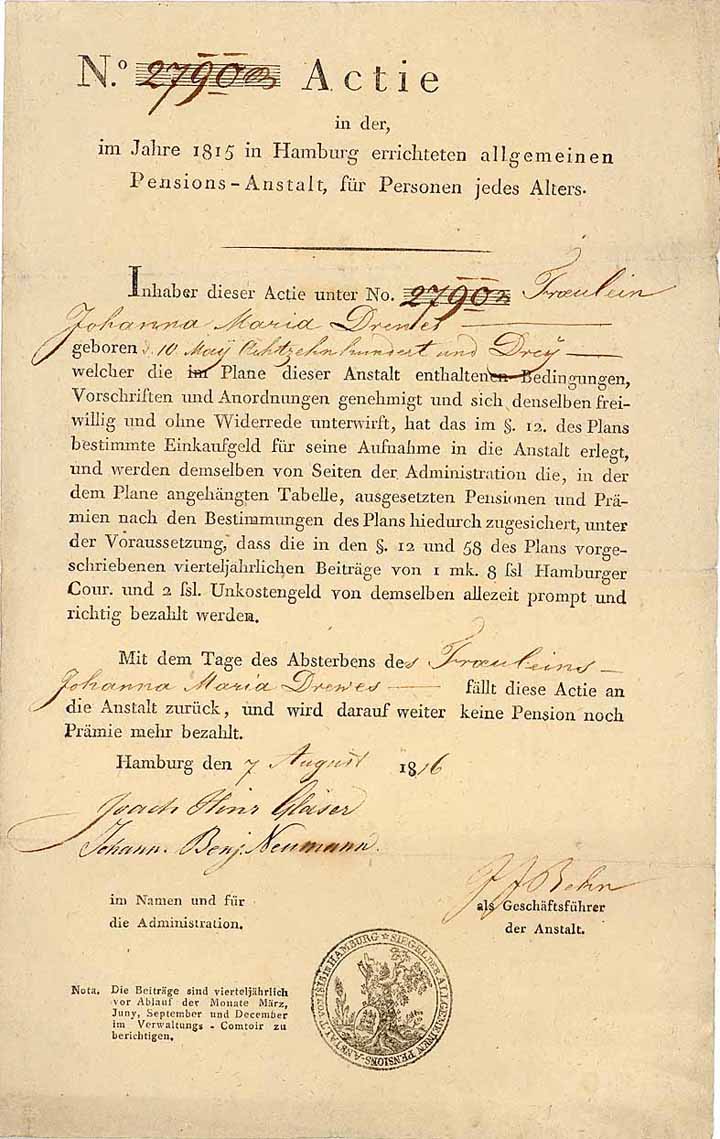 N.º 2790 Actie
in der,
im Jahre 1815 in Hamburg errichteten allgemeinen
Pensions-Anstalt, für Personen jedes Alters.
Inhaber dieser Actie unter No. 2790 Fræulein
Johanna Maria Drewes
geboren d. 10 Maÿ Achtzehnhundert und Dreÿ
welcher die im Plane dieser Anstalt enthaltenen Bedingungen,
Vorschriften und Anordnungen genehmigt und sich denselben frei-
willig und ohne Widerrede unterwirft, hat das im §. 12. des Plans
bestimmte Einkaufgeld für seine Aufnahme in die Anstalt erlegt,
und werden demselben von Seiten der Administration die, in der
dem Plane angehängten Tabelle, ausgesetzten Pensionen und Prä-
mien nach den Bestimmungen des Plans hiedurch zugesichert, unter
der Voraussetzung, dass die in den §. 12 und 58 des Plans vorge-
schriebenen vierteljährlichen Beiträge von 1 mk. 8 ſsl Hamburger
Cour. und 2 ſsl. Unkostengeld von demselben allezeit prompt und
richtig bezahlt werden.
Mit dem Tage des Absterbens des Fræuleins
Johanna Maria Drewes fällt diese Actie an
die Anstalt zurück, und wird darauf weiter keine Pension noch
Prämie mehr bezahlt.
Hamburg den 7 August 1816
Joach Hinr Gläser
Johann. Benj. Neumann.
im Namen und für
die Administration.
Behn
als Geschäftsführer
der Anstalt.
SIEGEL DER ALLGEMEINEN PENSIONS-ANSTALT VON 1815 IN HAMBURG
Nota. Die Beiträge sind vierteljährlich
vor Ablauf der Monate März,
Juny, September und December
im Verwaltungs-Comtoir zu
berichtigen.